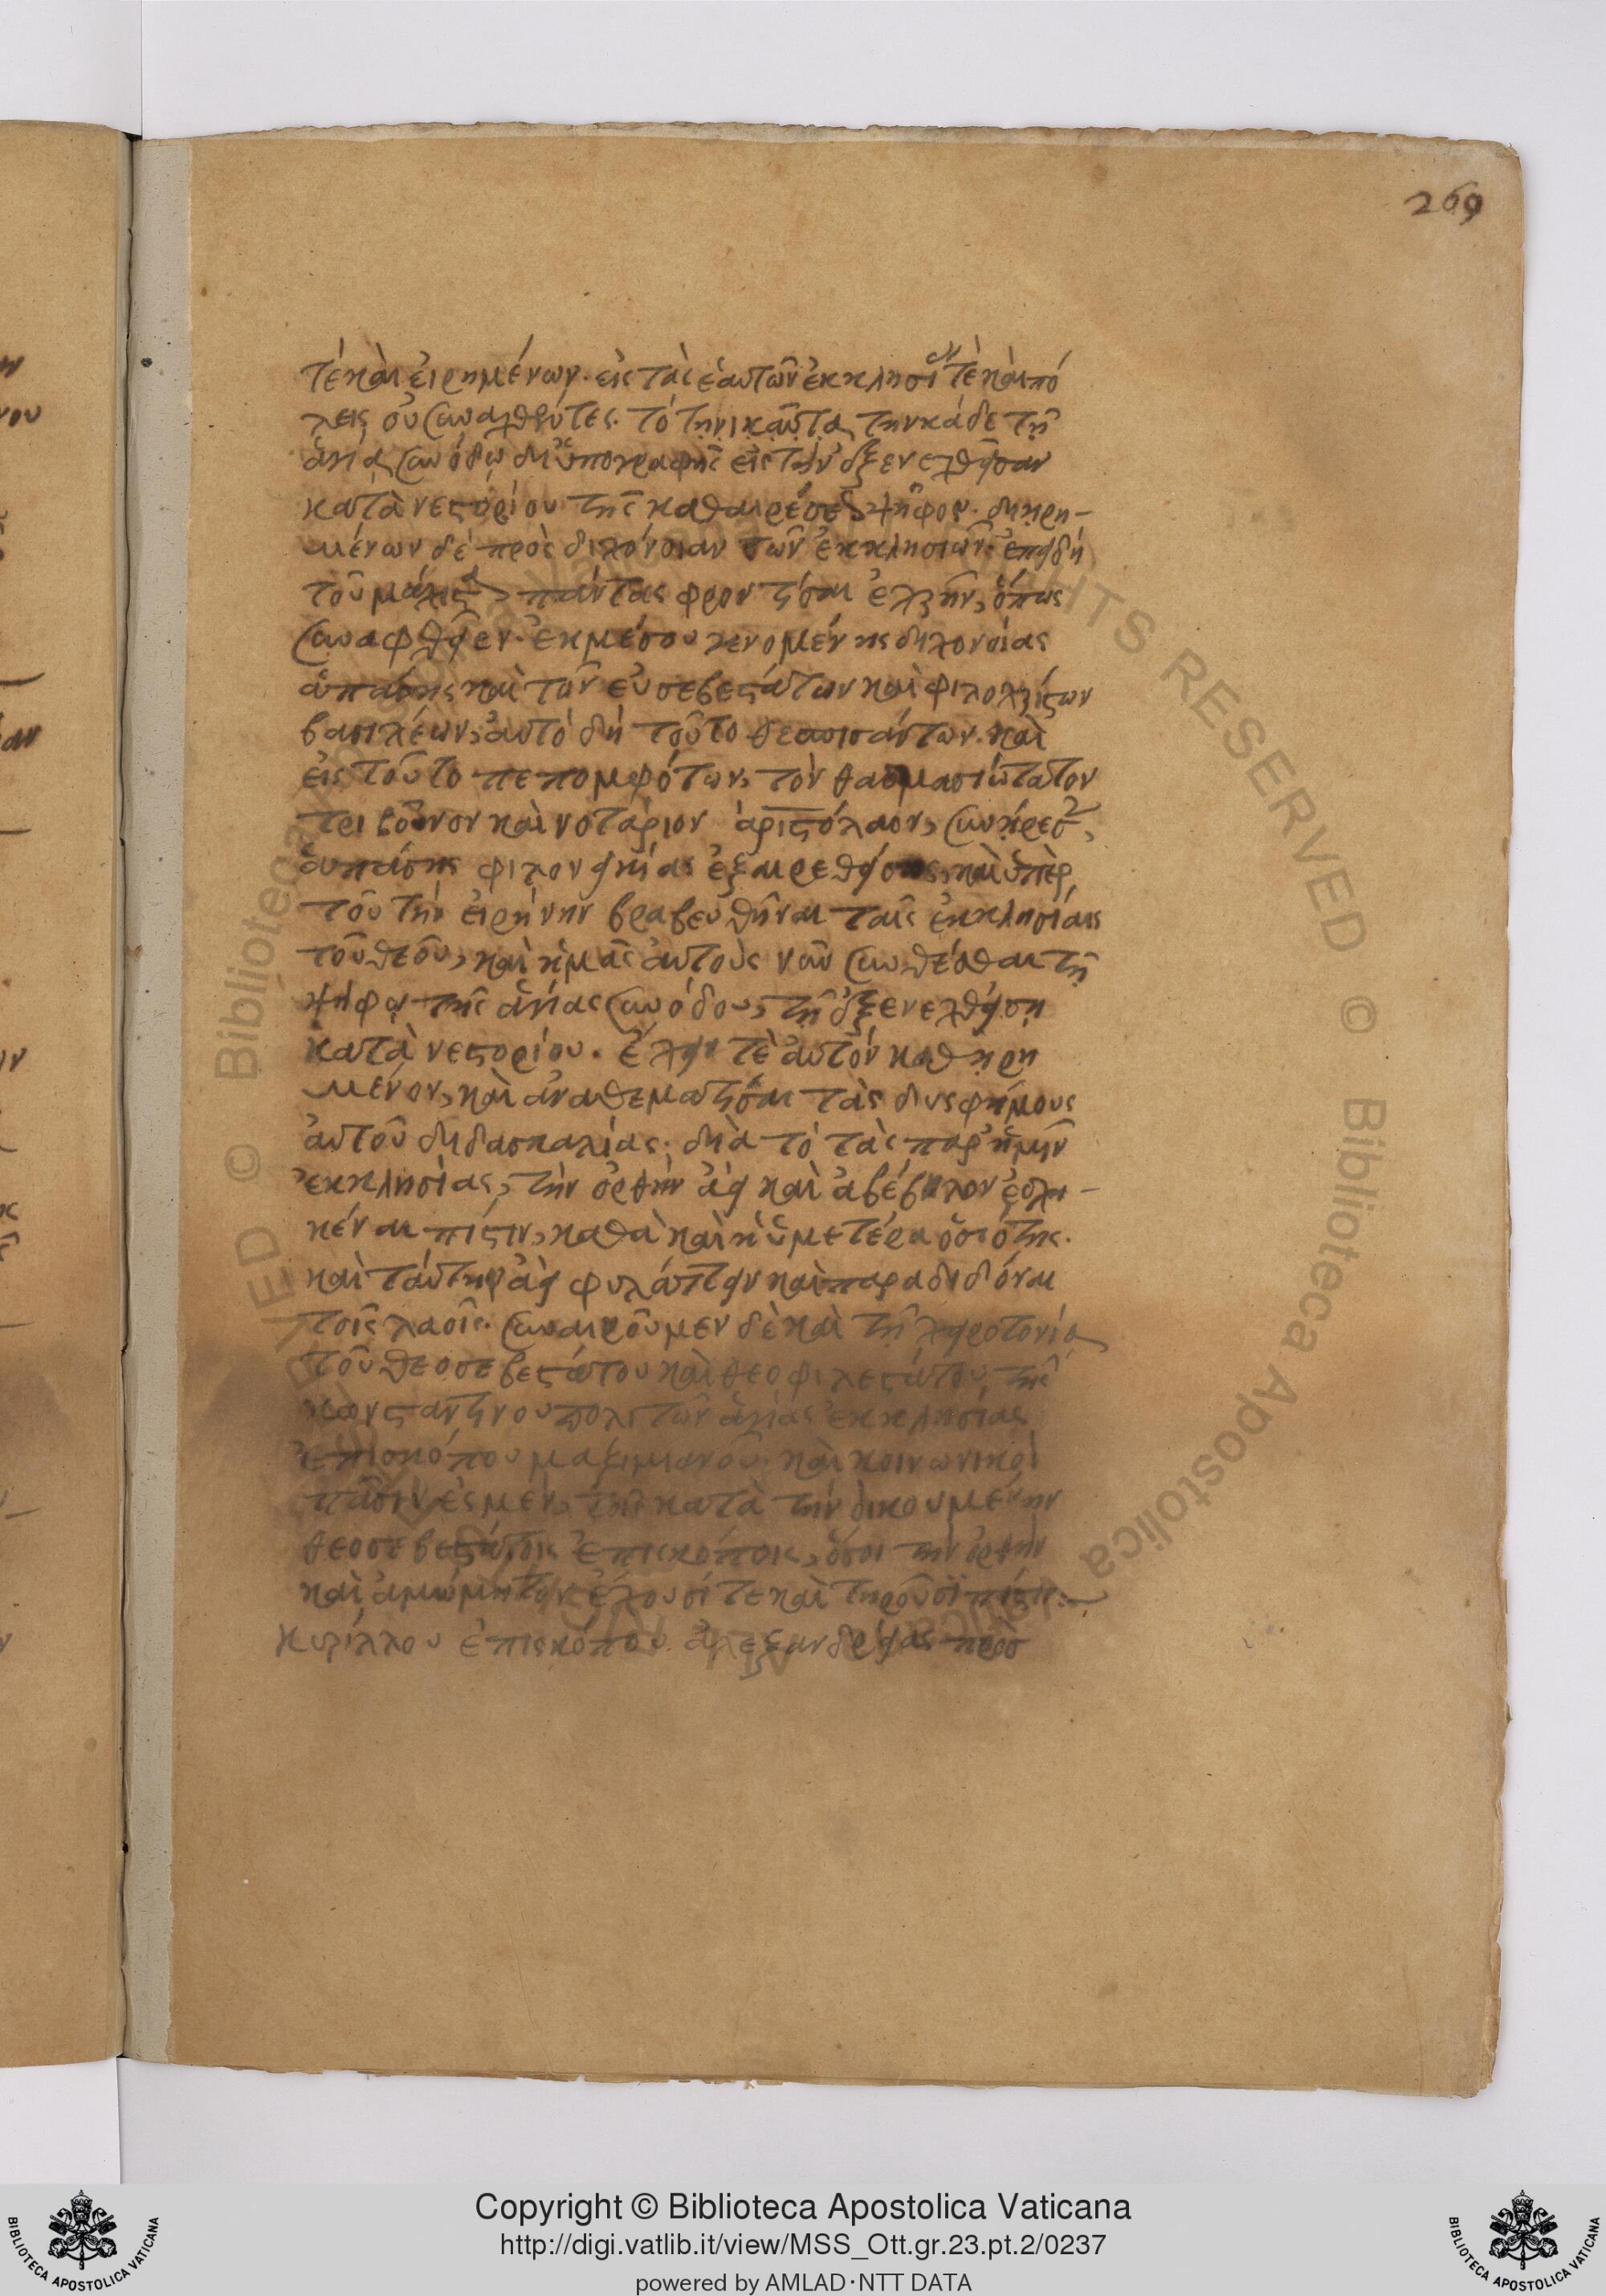 269
τὲ καὶ εἰρημένων· εἰς τὰς ἑαυτῶν ἐκκλησίαν τὲ καὶ πό
λεις οὐ συναχθέντες· τὸ τηνικαῦτα τηνκάδε τῇ
ἁγίᾳ συνόδῳ δι' ὑπογραφῆς εἰς τὴν ἐξενεχθεῖσαν
κατὰ νεστορίου τῆς καθαιρέσεως ψῆφον· διηρη-
μένων δὲ πρὸς διχόνοιαν τῶν ἐκκλησιῶν· ἐπειδὴ
τοῦ μάλιστα πάντας φροντίσαι ἐχρῆν, ὅπως
συναφθεῖεν· ἐκ μέσου γενομένης διχονοίας
ἁπάσης καὶ τῶν εὐσεβεστάτων καὶ φιλοχρίστων
βασιλέων, αὐτὸ δὴ τοῦτο θεσπισάντων· καὶ
εἰς τοῦτο πεπομφότων, τὸν θαυμασιώτατον
τριβοῦνον καὶ νοτάριον ἀριστόλαον, συνήρεσε,
ἁπάσης φιλονεικίας ἐξαιρεθείσης, καὶ ὑπὲρ
τοῦ τὴν εἰρήνην βραβευθῆναι ταῖς ἐκκλησίαις
τοῦ θεοῦ, καὶ ἡμᾶς αὐτοὺς νῦν συνθέσθαι τῇ
ψήφῳ τῆς ἁγίας συνόδου, τῇ ἐξενεχθείσῃ
κατὰ νεστορίου. ἔχειν τὲ αὐτὸν καθηρη
μένον, καὶ ἀναθεματίσαι τὰς δυσφήμους
αὐτοῦ διδασκαλίας· διὰ τὸ τὰς παρ' ἡμῖν
ἐκκλησίας, τὴν ὀρθὴν ἀεὶ καὶ ἀβέβηλον ἐσχη-
κέναι πίστιν, καθὰ καὶ ἡ ὑμετέρα ὁσιότης·
καὶ ταύτην ἀεὶ φυλάττειν καὶ παραδιδόναι
τοῖς λαοῖς· συναιροῦμεν δὲ καὶ τῇ χειροτονίᾳ
τοῦ θεοσεβεστάτου καὶ θεοφιλεστάτου τῆς
κωνσταντινουπολιτῶν ἁγίας ἐκκλησίας
ἐπισκόπου μαξιμιανοῦ· καὶ κοινωνικοὶ
πᾶσιν ἐσμὲν, τοῖς κατὰ τὴν οἰκουμένην
θεοσεβεστάτοις ἐπισκόποις, ὅσοι τὴν ὀρθὴν
καὶ ἀμώμητον ἔχουσί τε καὶ τηροῦσι πίστιν:
κυρίλλου ἐπισκόπου ἀλεξανδρείας πρὸς
Copyright © Biblioteca Apostolica Vaticana
http://digi.vatlib.it/view/MSS_Ott.gr.23.pt.2/0237
powered by AMLAD·NTT DATA